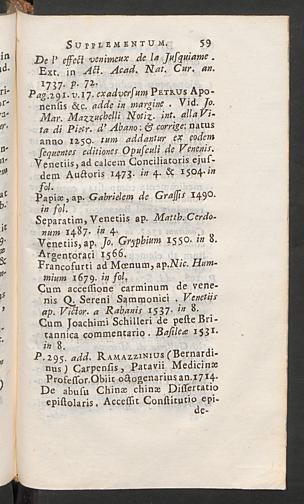 SUPPLEMENTUM. 59
De l' effect venimeux de la Jusquiame.
Ext. in Act. Acad. Nat. Cur. an.
1737. p. 72.
Pag.291. v.17. exadversum PETRUS Apo-
nensis &c. adde in margine. Vid. Jo.
Mar. Mazzuchelli Notiz. int. alla Vi-
ta di Pietr. d' Abano; & corrige: natus
anno 1250. tum addantur ex eodem
sequentes editiones Opusculi de Venenis.
Venetiis, ad calcem Conciliatoris ejus-
dem Auctoris 1473. in 4. & 1504. in
fol.
Papiæ, ap. Gabrielem de Grassis 1490.
in fol.
Separatim, Venetiis ap. Matth. Cerdo-
num 1487. in 4.
Venetiis, ap. Jo. Gryphium 1550. in 8.
Argentoraci 1566.
Francofurti ad Mœnum, ap. Nic. Hum-
mium 1679. in fol.
Cum accessione carminum de vene-
nis Q. Sereni Sammonici. Venetiis
ap. Victor. a Rabanis 1537. in 8.
Cum Joachimi Schilleri de peste Bri-
tannica commentario. Basileæ 1531.
in 8.
P. 295. add. RAMAZZINIUS (Bernardi-
nus) Carpensis, Patavii Medicinæ
Professor. Obiit octogenarius an. 1714.
De abusu Chinæ chinæ Dissertatio
epistolaris. Accessit Constitutio epi-
de-